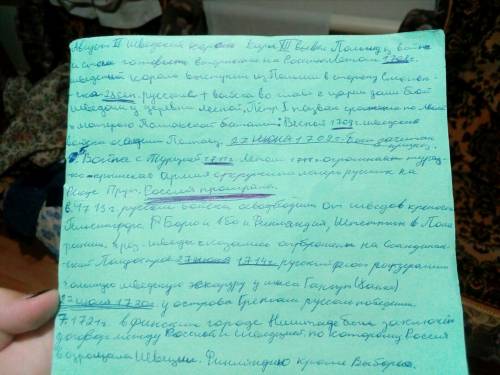 Август II шведский король Карл XII вывел Польшу из войны
и стал готовить вторжение на Россию. Летом 1708 г.
шведский король выступил из Польши в сторону Смолен-
ска. 28 сен. русские войска во главе с царем дали бой
шведам у деревни Лесной. Пётр I назвал сражение при Лесной
матерью Полтавской баталии. Весной 1709 шведские
войска осадили Полтаву. 27 июня 1709 г. было
Война с Турцией 1711 г. Летом 1711 огромная турец-
армия окружила лагерь русских на
реке Прут. Россия проиграла.
в 1713 г. русские войска освободили от шведов
г. Борго и Або и Финляндия, Штеттин в Поме-
рании, в рез. шведы оказались отброшены на Скандинав-
ский Полуостров 27 июля 1714 г. русский флот разгромил
шведскую эскадру у мыса Гангут (Ханко)
27 июля 1720 г. у острова Гренгам русские победили
7. 1721 г. в финском городе Ништадте был заключён
договор между Россией и Швецией, по которому Россия
возвращала Швеции. Финляндию кроме Выборга.